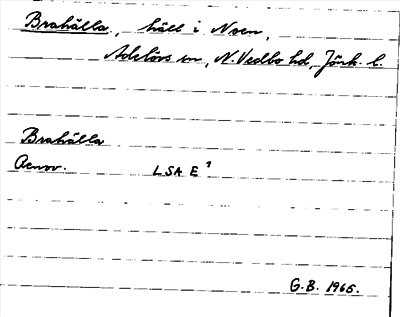 Brahälla, häll i Noen,
Adelövs sn, N. Vedbo hd, Jönk. l.
Brahälla
Aenov. LSA E¹
G.B. 1966.